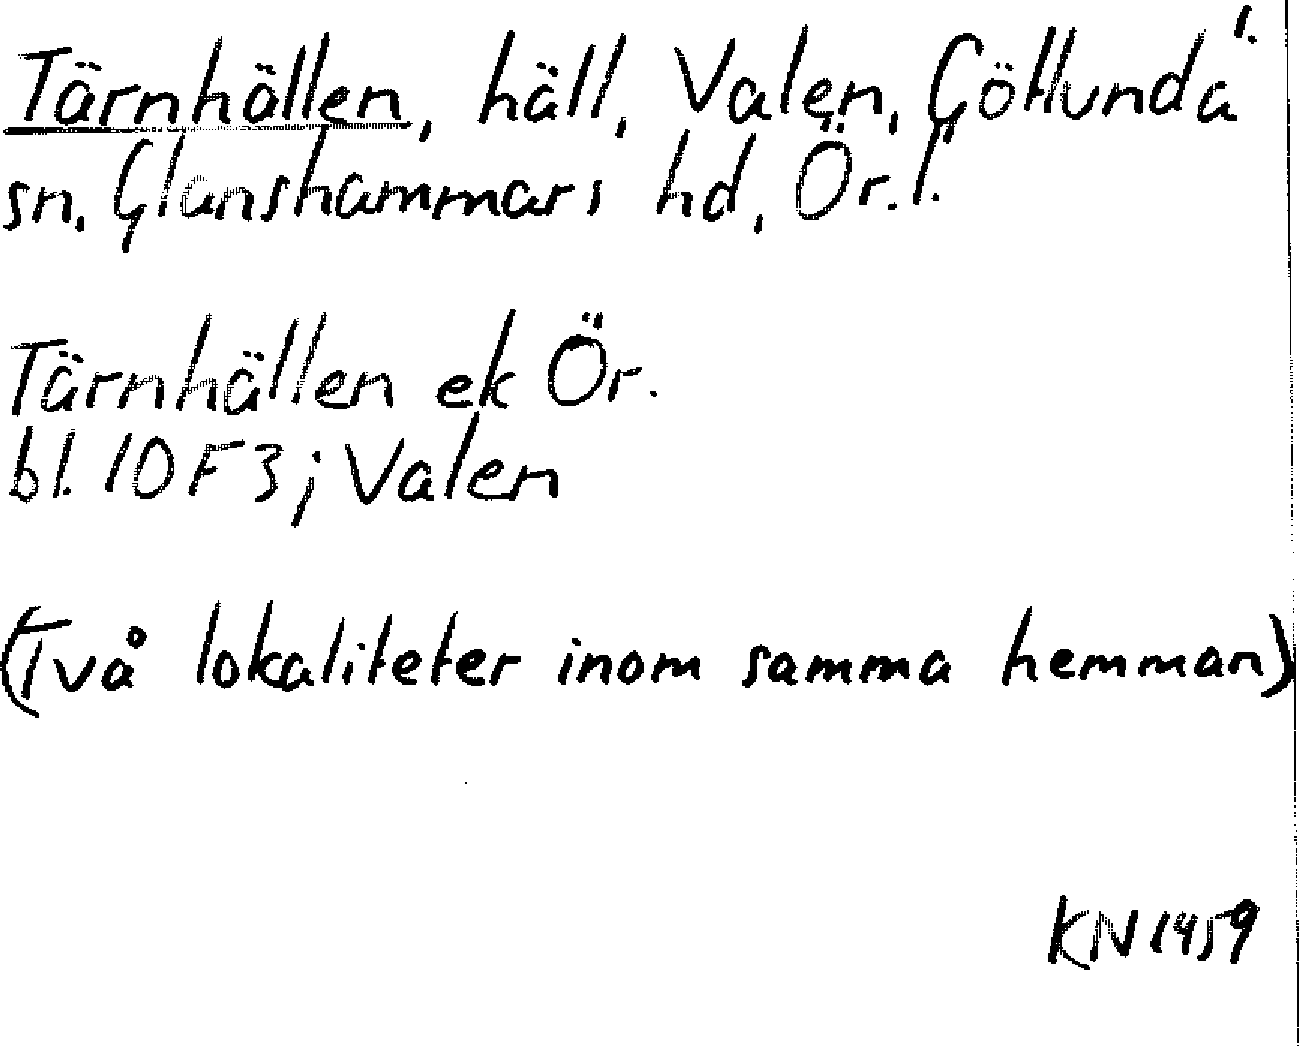 1.
Tärnhällen, häll, Valen, Götlunda
sn, Glanshammars hd, Ör.l.
Tärnhällen ek Ör.
bl. 10F3; Valen
(Två lokaliteter inom samma hemman)
KN 1459